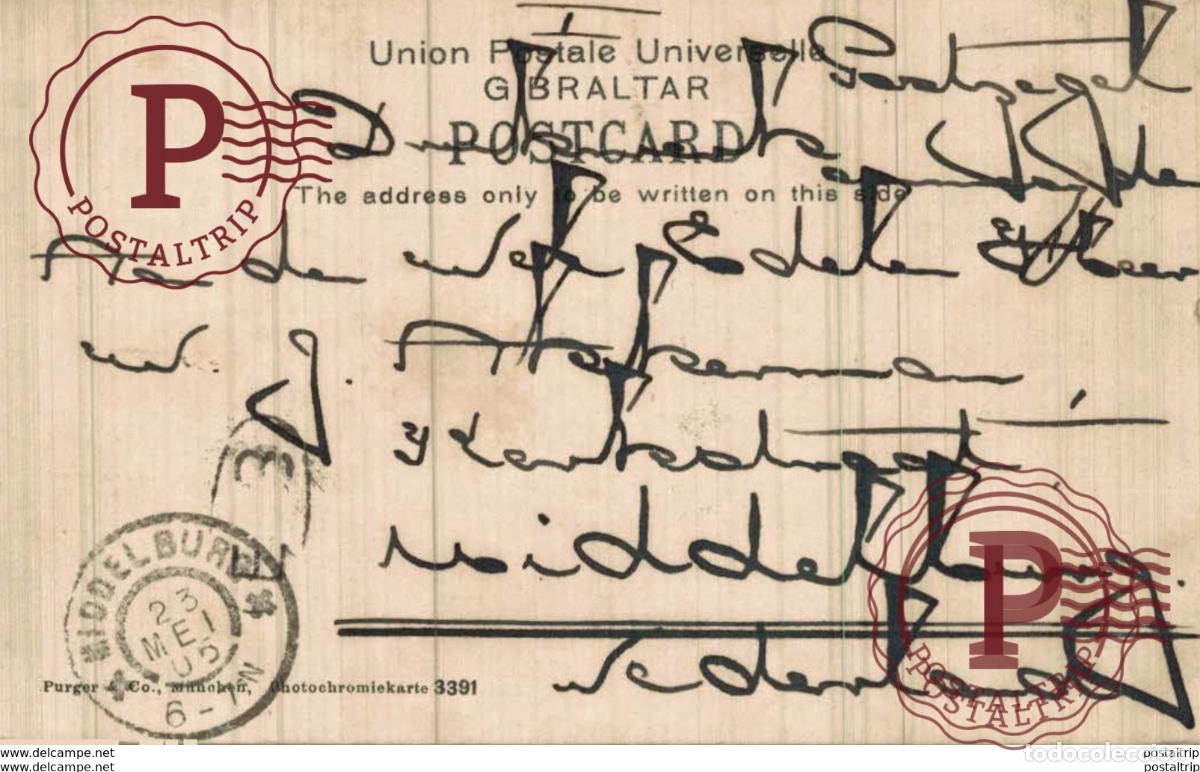 Union Postale Universelle
GIBRALTAR
POSTCARD
The address only to be written on this side
Postzegel
Drukwerk
aan den Wel Edelen Heer
W. J.
Kerkstraat
Middelburg.
Nederland
3
MIDDELBURG
23
MEI
05
6-7N
Purger & Co., München, Photochromiekarte 3391
P
POSTALTRIP
P
POSTALTRIP
www.delcampe.net
www.delcampe.net
todocoleccion
postaltrip
postaltrip